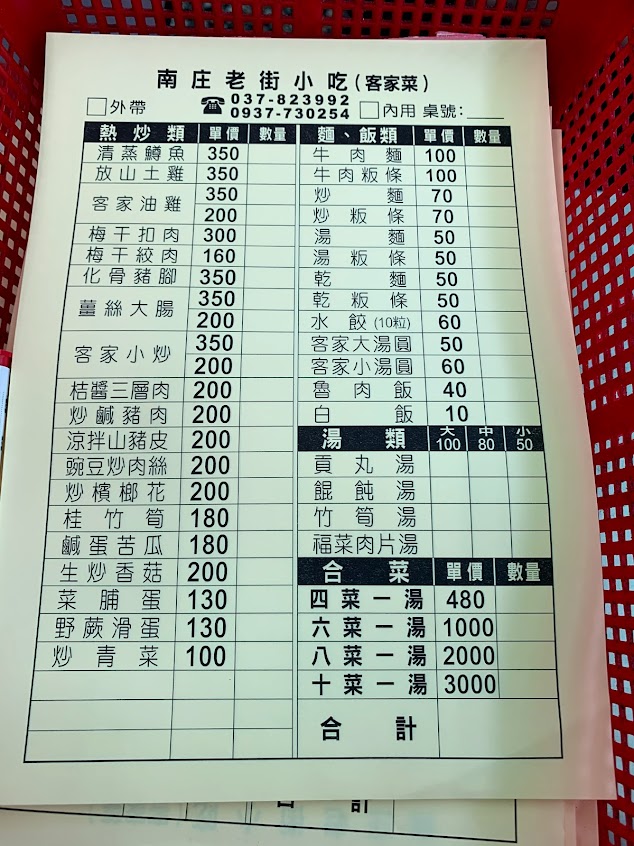 南庄老街小吃(客家菜)
外帶 ☎ 037-823992 0937-730254 內用 桌號:
熱炒類 單價 數量
清蒸鱒魚 350
放山土雞 350
客家油雞 350 200
梅干扣肉 300
梅干絞肉 160
化骨豬腳 350
薑絲大腸 350 200
客家小炒 350 200
桔醬三層肉 200
炒鹹豬肉 200
涼拌山豬皮 200
豌豆炒肉絲 200
炒檳榔花 200
桂竹筍 180
鹹蛋苦瓜 180
生炒香菇 200
菜脯蛋 130
野蕨滑蛋 130
炒青菜 100
麵、飯類 單價 數量
牛肉麵 100
牛肉粄條 100
炒麵 70
炒粄條 70
湯麵 50
湯粄條 50
乾麵 50
乾粄條 50
水餃(10粒) 60
客家大湯圓 50
客家小湯圓 60
魯肉飯 40
白飯 10
湯類 大100 中80 小50
貢丸湯
餛飩湯
竹筍湯
福菜肉片湯
合菜 單價 數量
四菜一湯 480
六菜一湯 1000
八菜一湯 2000
十菜一湯 3000
合計
合計